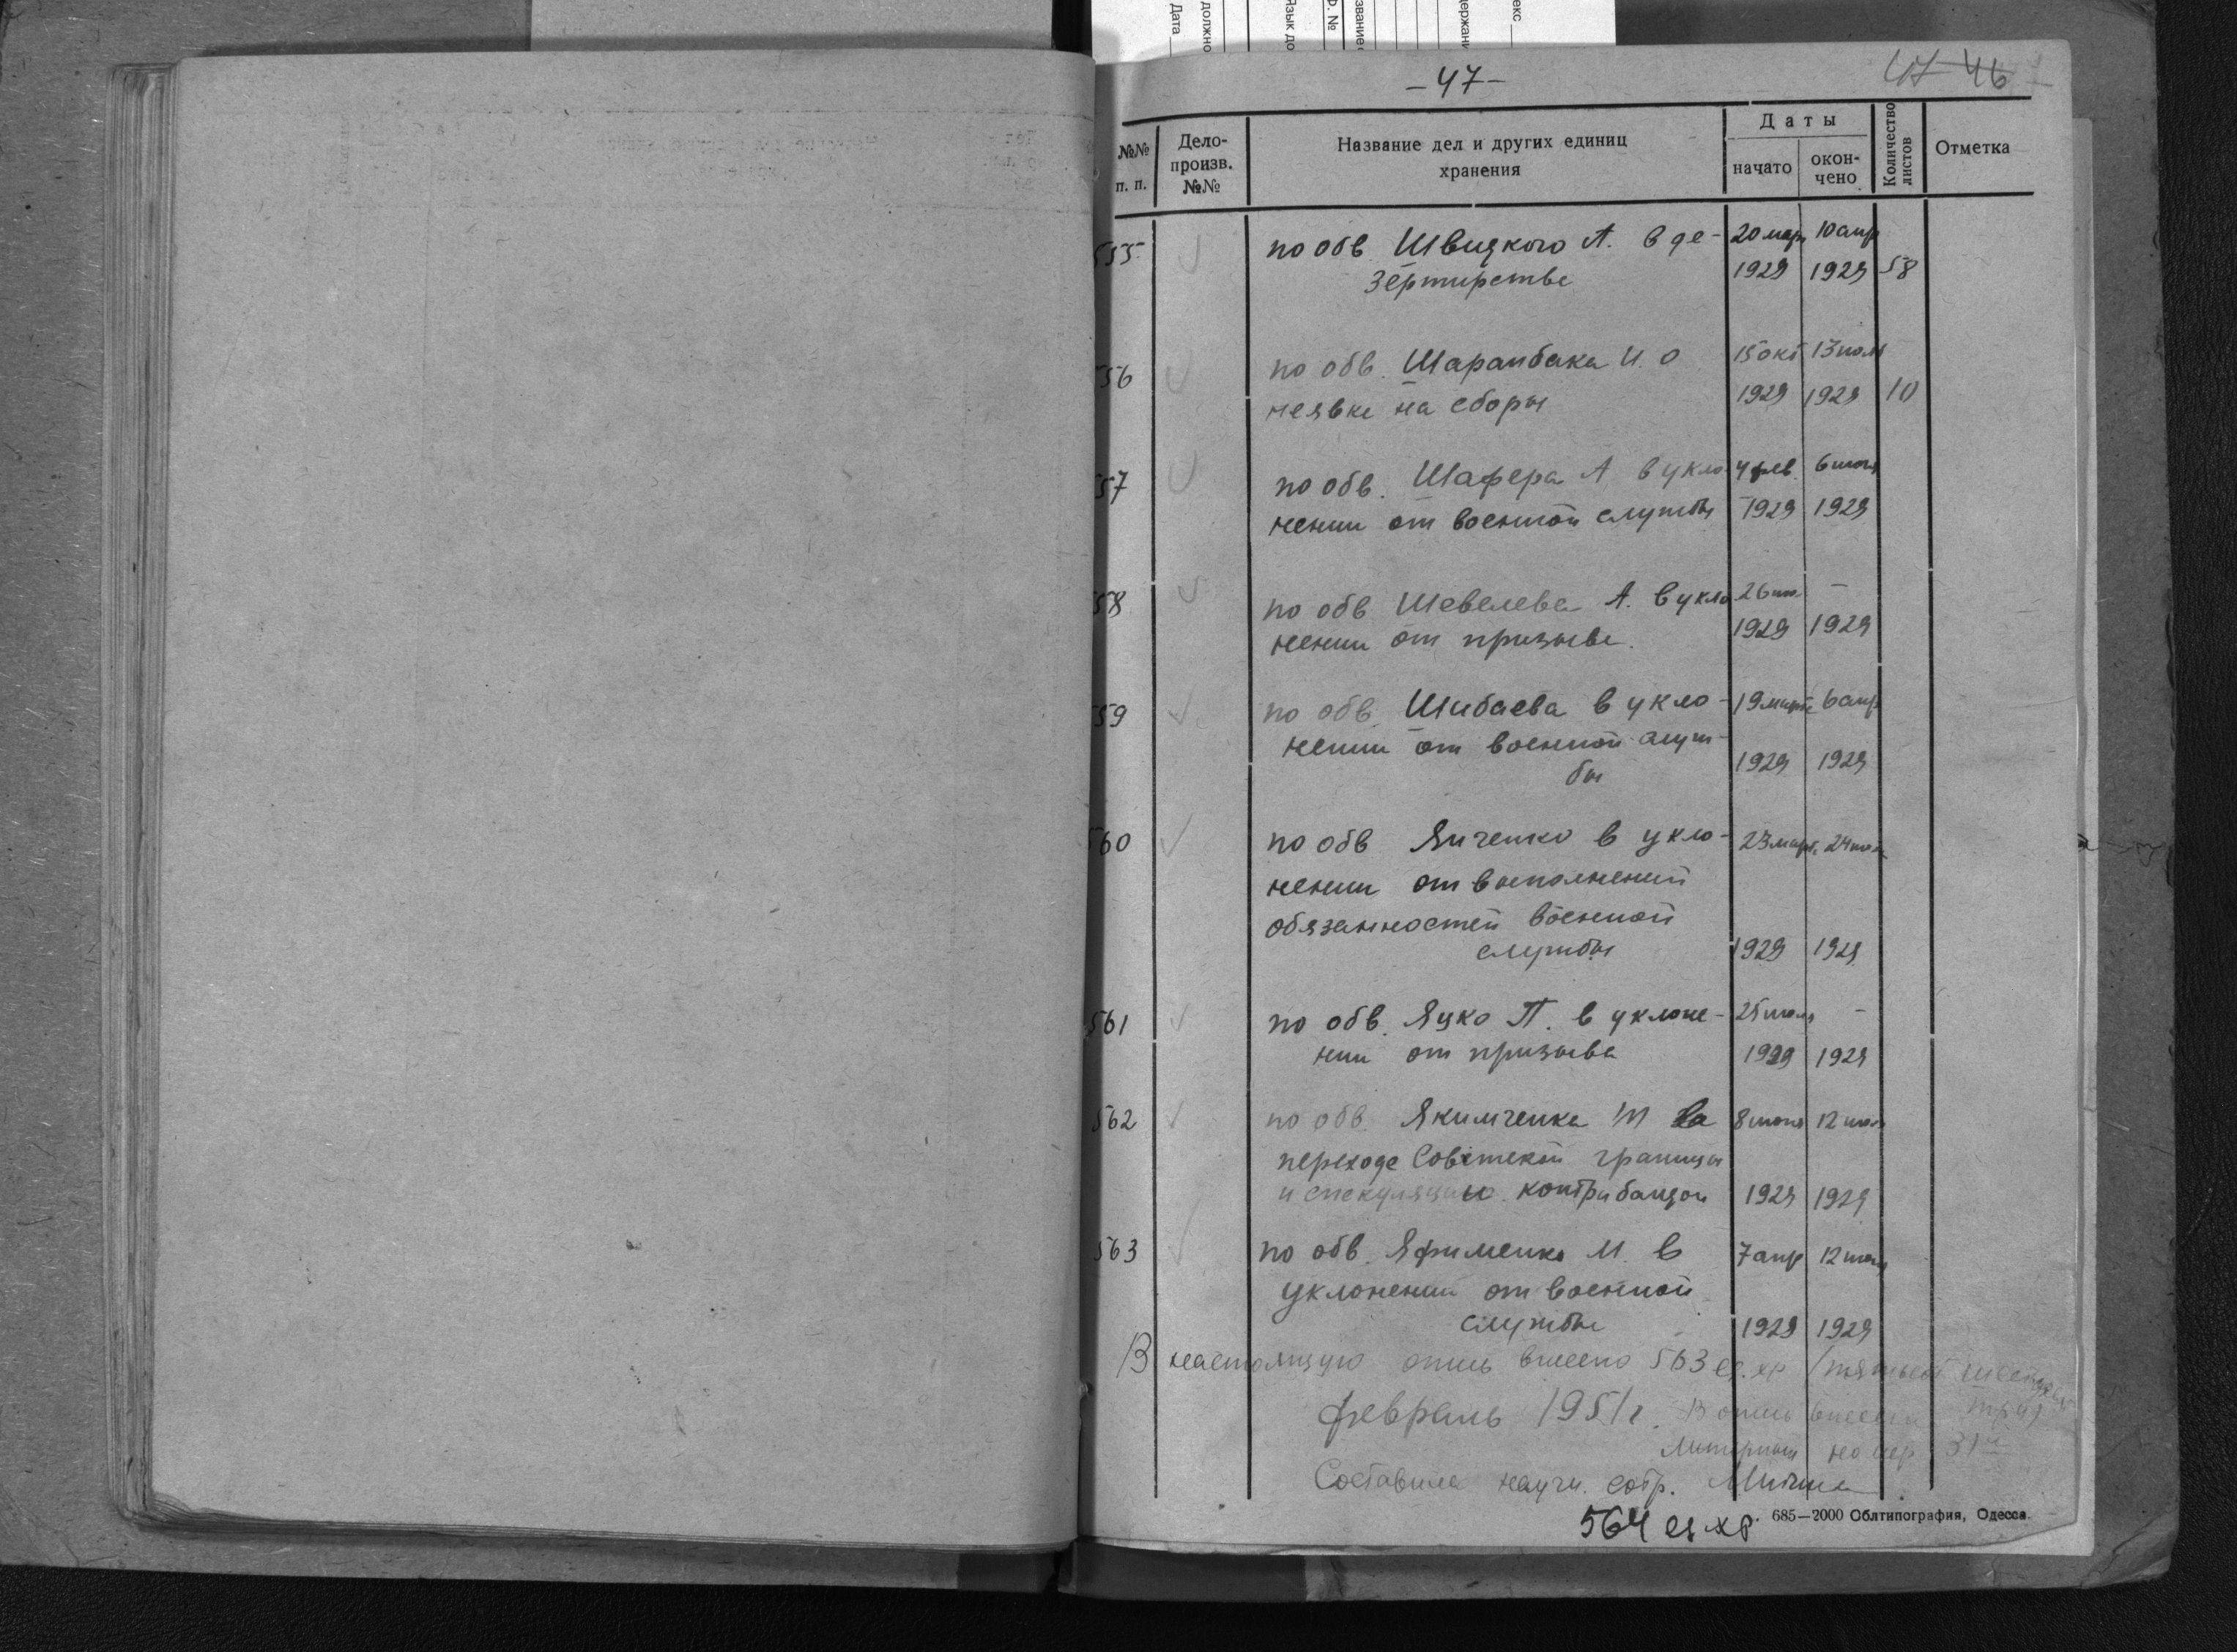 –47–
47 46
№№ п. п.
Дело-произв. №№
Название дел и других единиц хранения
Даты
начато
окон-чено
Количество листов
Отметка
555 по обв. Швицкого А. в де- 20 мар 10 апр
зертирстве 1929 1929 58
556 по обв. Шарапбака И. о 15 окт 13
неявке на сборы 1929 1929 10
557 по обв. Шафера А в укло 4 фев. 6
нении от военной службы 1929 1929
558 по обв Шевелева А. в укло 26 –
нении от призыва. 1929 1929
559 по обв. Шибаева в укло- 19 марта 6 апр
нении от военной служ-
бы 1929 1929
560 по обв Янченко в укло- 23 март. 24
нении от выполнений
обязанностей военной
службы 1929 1929
561 по обв. Яцко П. в уклоне- 25 июля –
нии от призыва 1929 1929
562 по обв. Якимченка М 8 12
переходе Советской границы
и спекуляции контрабандой 1929 1929
563 по обв. Яфименко М. в 7 апр 12
уклонении от военной
службы 1929 1929
В настоящую опись внесено 563 ед. хр (пятьсот шестьдесят
три)
февраль 1951 г. В опись внесены
Литерные номер 31
Составила научн. сотр.
564 ед. хр.
685—2000 Облтипография, Одесса.
Дата
должно
Язык до
Ф. №